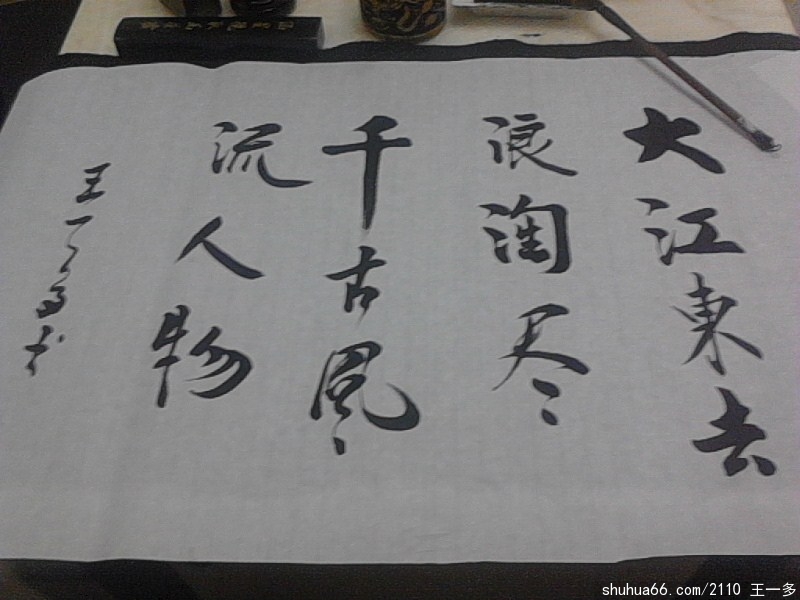 大江東去
浪淘尽
千古風
流人物
王一多书
shuhua66.com/2110 王一多